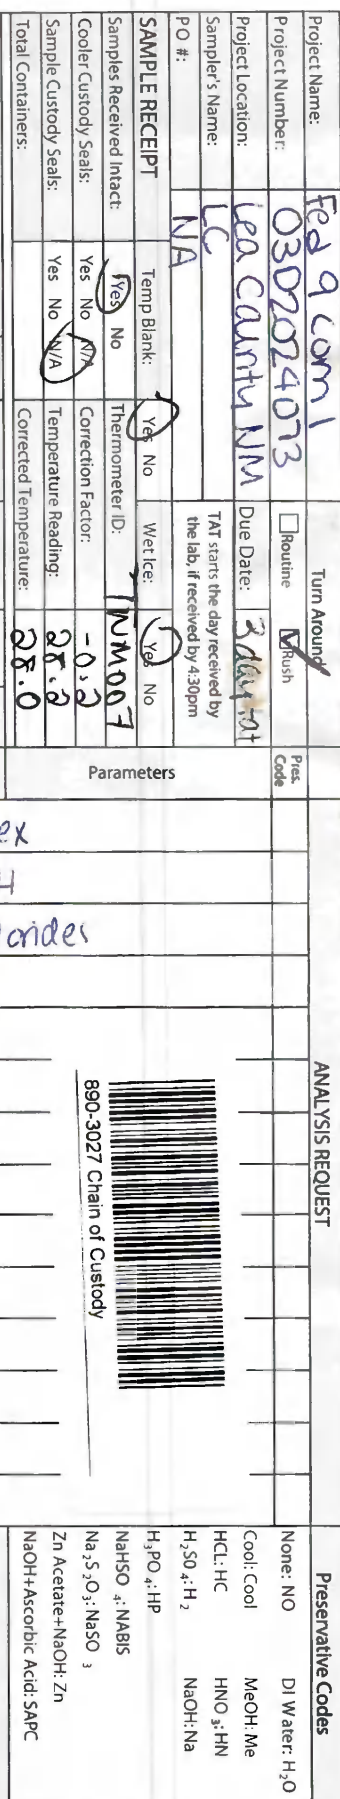 Project Name: Fed 9 com 1 Turn Around
Project Number: 03D2024073 Routine Rush Pres. Code
Project Location: Lea County NM Due Date: 3 day tat
Sampler's Name: LC TAT starts the day received by
PO #: NA the lab, if received by 4:30pm
SAMPLE RECEIPT Temp Blank: Yes No Wet Ice: Yes No
Samples Received Intact: Yes No Thermometer ID: TNM007
Cooler Custody Seals: Yes No N/A Correction Factor: -0.2
Sample Custody Seals: Yes No N/A Temperature Reading: 28.2
Total Containers: Corrected Temperature: 28.0
Parameters
ANALYSIS REQUEST
890-3027 Chain of Custody
Preservative Codes
None: NO DI Water: H2O
Cool: Cool MeOH: Me
HCL: HC HNO3: HN
H2SO4: H2 NaOH: Na
H3PO4: HP
NaHSO4: NABIS
Na2S2O3: NaSO3
Zn Acetate+NaOH: Zn
NaOH+Ascorbic Acid: SAPC